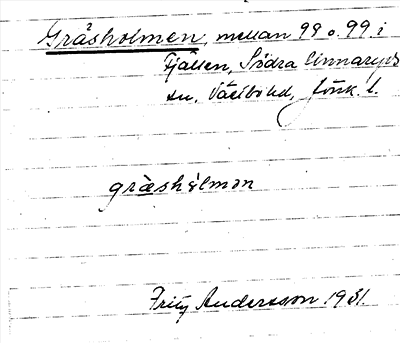 Gräsholmen, mellan 98 o. 99 i
Fjällen, Södra Unnaryds
sn, Västbo hd, Jönk. l.
græshʹɩlmən
Fritz Andersson 1931.